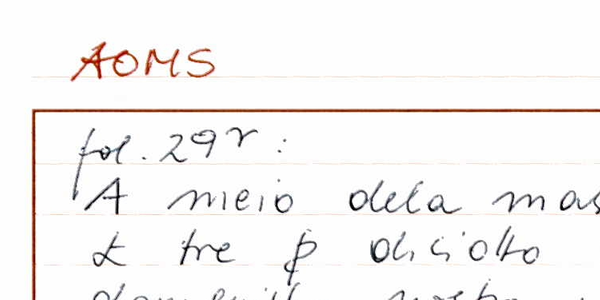 AOMS
fol. 29r:
A meio dela mas
& tre ꝑ diciotto